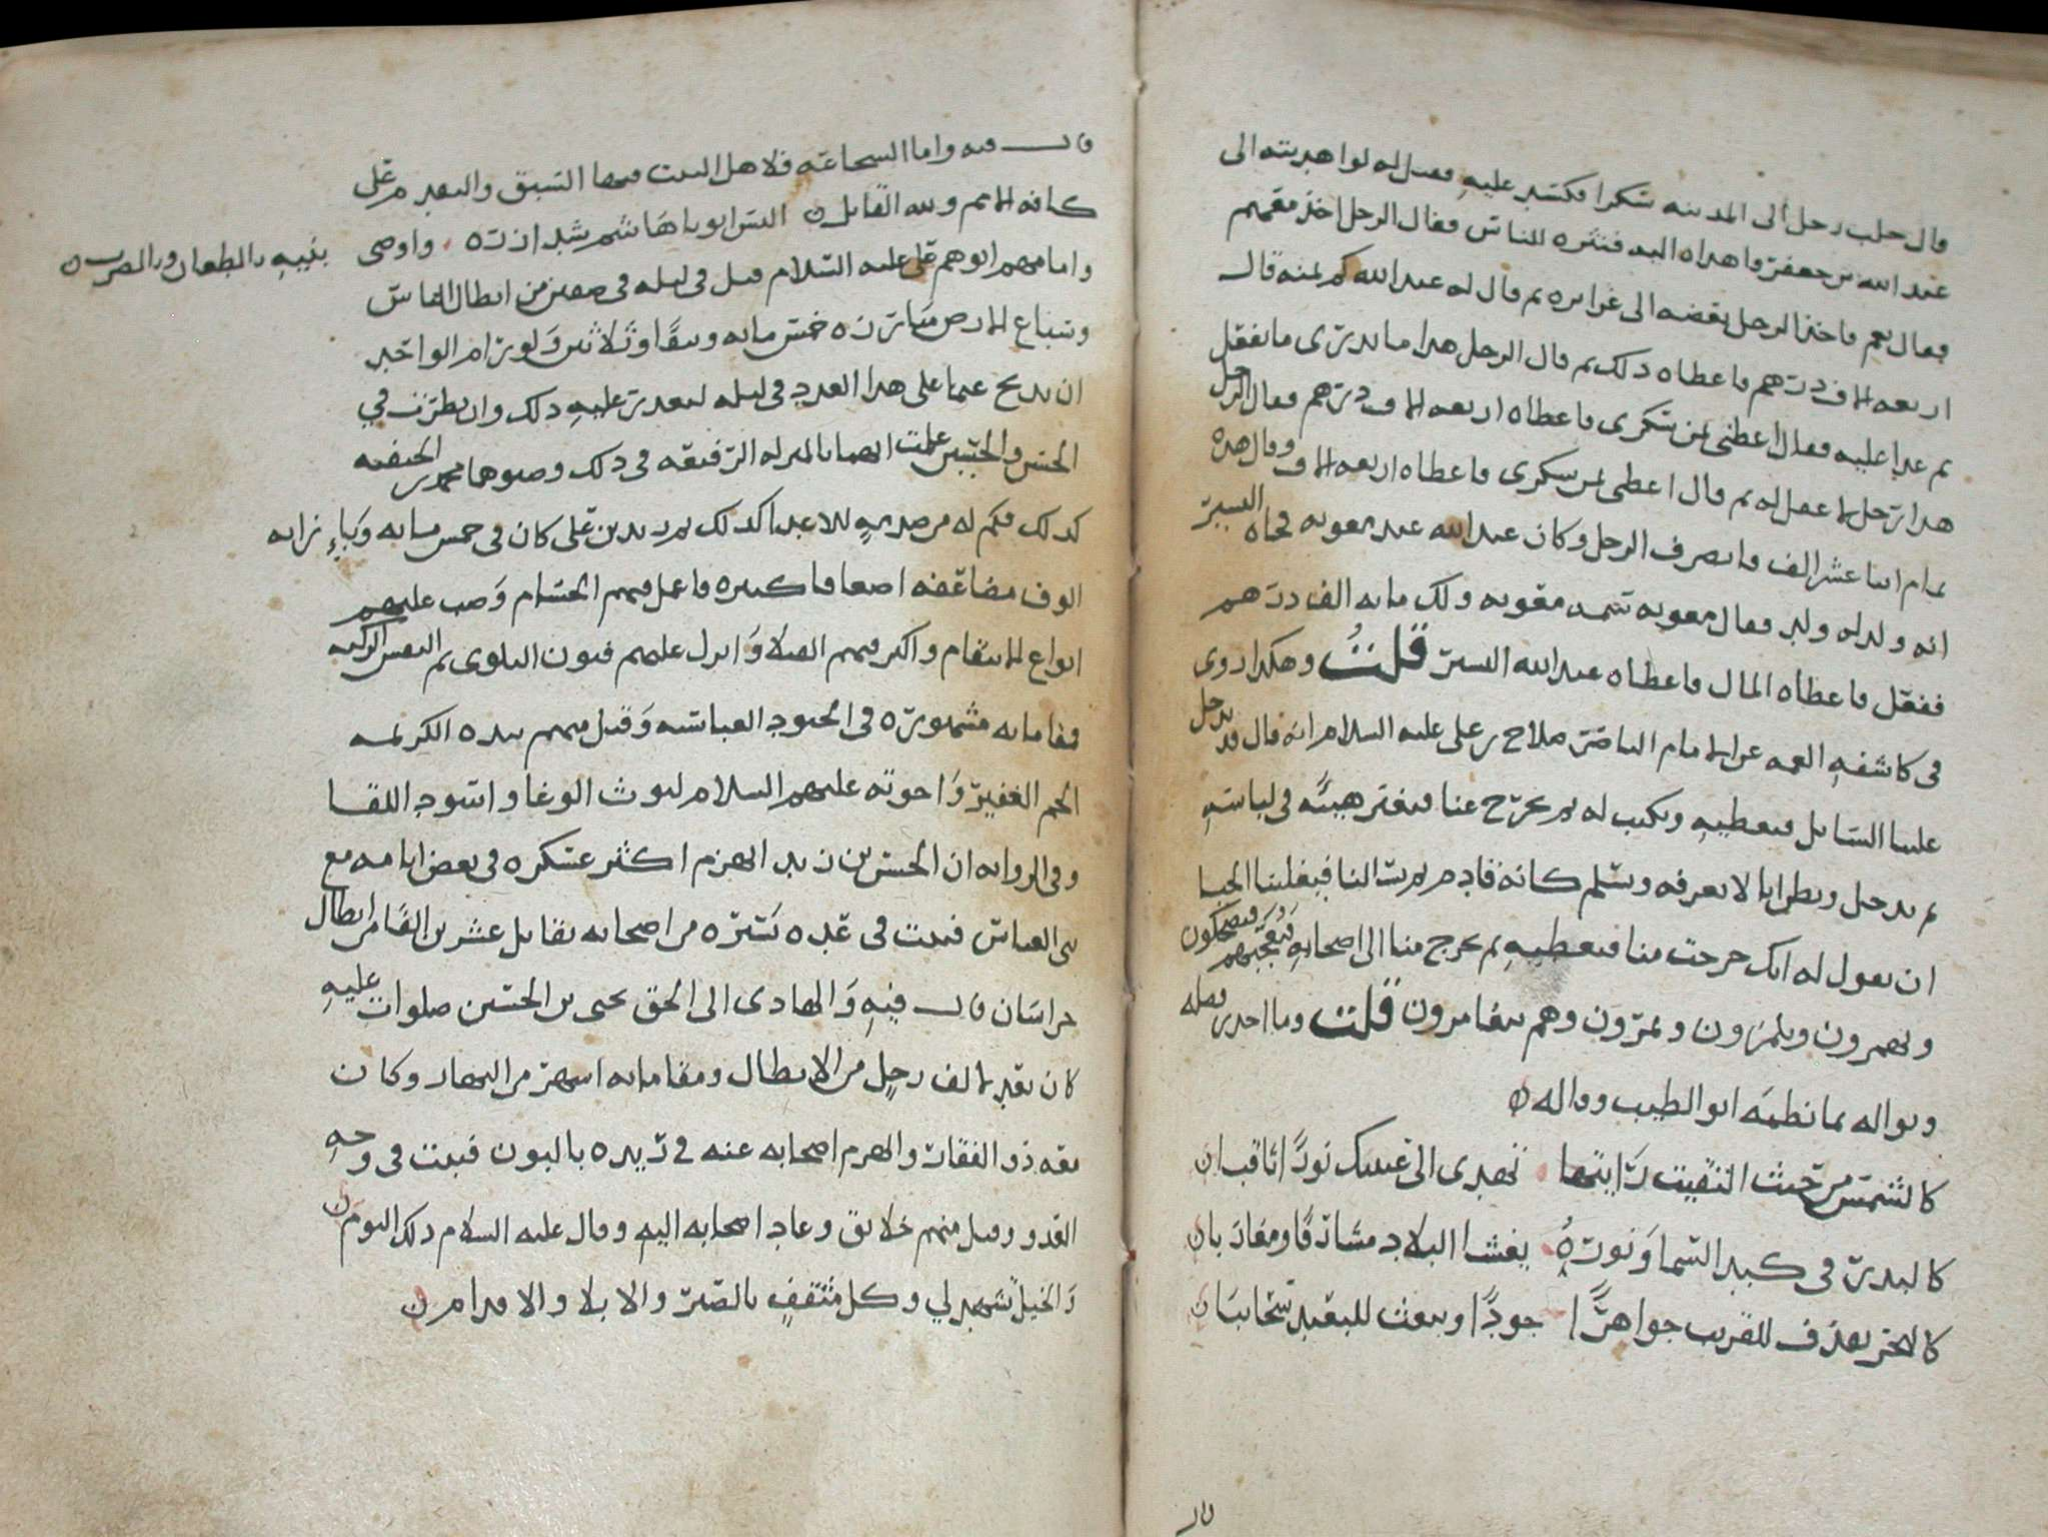 قال جلب رجل الى المدينه سكرا فكسد عليه فقيل له لو اهديته الى
عبد الله بن جعفر فاهداه اليه فنثره للناس فقال الرجل اخذ معهم
فقال نعم فاخذ الرجل يقضه الى غرايره ثم قال له عبد الله كم ثمنه قال
اربعه الاف درهم فاعطاه ذلك ثم قال الرجل هذا ما يدرى ما يفعل
ثم غدا عليه فقال اعطنى ثمن سكرى فاعطاه اربعه الاف درهم فقال الرجل
هذا رجل لا عقل له ثم قال اعطنى ثمن سكرى فاعطاه اربعه الاف وقال هذه
تمام اثنا عشر الف فانصرف الرجل وكان عبد الله عند معويه فجاه البشير
انه ولد له ولد فقال معويه سمه معويه ولك مايه الف درهم
ففعل فاعطاه المال فاعطاه عبد الله البشير قلت وهكذا روى
فى كاشفه الغمه عن الامام الناصر صلاح بن على عليه السلام انه قال قد يدخل
علينا السايل فيعطيه ويكتب له ثم يخرج عنا فيغير هيئته فى لباسه
ثم يدخل ويظن انا لا نعرفه ويسلم كانه قادم لم يرث الينا فيغلبنا الحيا
ان نقول له انك خرجت منا فيعطيه ثم يخرج منا الى اصحابه فيعجبهم فيضحكون
ويهمزون ويلمزون ويمرون وهم يتغامزون قلت وما احد بفعله
ونواله بما نظمه ابو الطيب وقاله
كالشمس من حيث التفيت رايتها تهدى الى عينيك نورا ثاقبا
كالبدر فى كبد السما ونوره يغشا البلاد مشارقا ومغاربا
كالبحر يقذف للقريب جواهرا جودا ويبعث للبعيد سحائبا
قال
قال فيه واما الشجاعه فلاهل البيت فيها السبق والتقدم على
كافه الامم ولله القايل اليس ابونا هاشم شد ازره واوصى بنيه بالطعان وبالضرب
وامامهم ابوهم على عليه السلام قتل فى ليله فى صفين من ابطال الناس
وسباع الارض مبارزه خمس مايه ونيفا وثلاثين ولو رام الواحد
ان يذبح غنما على هذا العدد فى ليله لتعذر عليه ذلك وان نظرت في
الحسن والحسين علمت انهما بالمنزله الرفيعه فى ذلك وصنوهما محمد بن الحنفيه
كذلك فكم له من صدمه للاعدا كذلك زيد بن على كان فى خمس مايه وباء نزايه
الوف مضاعفه اضعافا كثيره فاعمل فيهم الحسام وصب عليهم
انواع الانتقام واكثر فيهم القتلا وانزل عليهم فنون البلوى ثم النفس الزكيه
مقاماته مشهوره فى الجنود العباسيه وقتل منهم بيده الكريمه
الجم الغفير واخوته عليهم السلام ليوث الوغا واسود اللقا
وفى الروايه ان الحسن بن زيد انهزم اكثر عسكره فى بعض ايامه مع
بنى العباس فثبت فى عده يسيره من اصحابه يقاتل عشرين الفا من ابطال
خراسان قال فيه والهادى الى الحق يحيى بن الحسين صلوات عليه
كان يعد بالف رجل من الابطال ومقاماته اشهر من النهار وكان
معه ذو الفقار وانهزم اصحابه عنه في ريده بالبون فثبت فى وجه
العدو وقتل منهم خلايق وعاد اصحابه اليه وقال عليه السلام ذلك اليوم
والخيل تشهد لي وكل مثقف بالصبر والابلا والاقدام